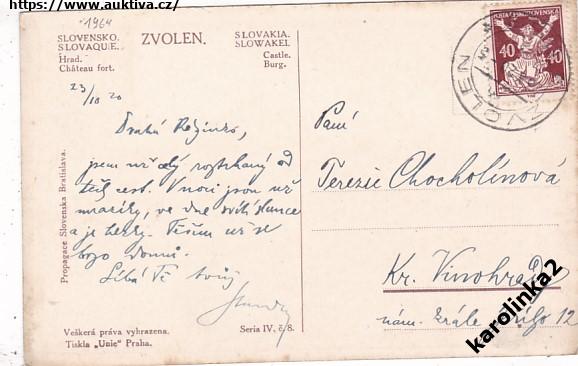 https://www.auktiva.cz/
1964
SLOVENSKO.
SLOVAQUIE.
Hrad.
Château fort.
ZVOLEN.
SLOVAKIA.
SLOWAKEI.
Castle.
Burg.
POŠTA ČESKOSLOVENSKÁ
40 40
ZVOLEN
23/10 20
Drahá
jsem už celý roztrhaný od
cest. V noci jsou už
mrazíky, ve dne svítí slunce
a je hezky. Těším už se
brzo domů.
Líbá Tě Tvůj
Paní
Terezie Chocholínová
Kr. Vinohrady
nám. krále 12
Propagace Slovenska Bratislava.
Veškerá práva vyhrazena.
Tiskla „Unie" Praha.
Seria IV, č. 8.
karolinka2